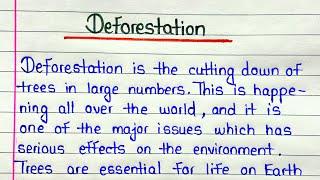 Deforestation
Deforestation is the cutting down of
trees in large numbers. This is happe-
ning all over the world, and it is
one of the major issues which has
serious effects on the environment.
Trees are essential for life on Earth